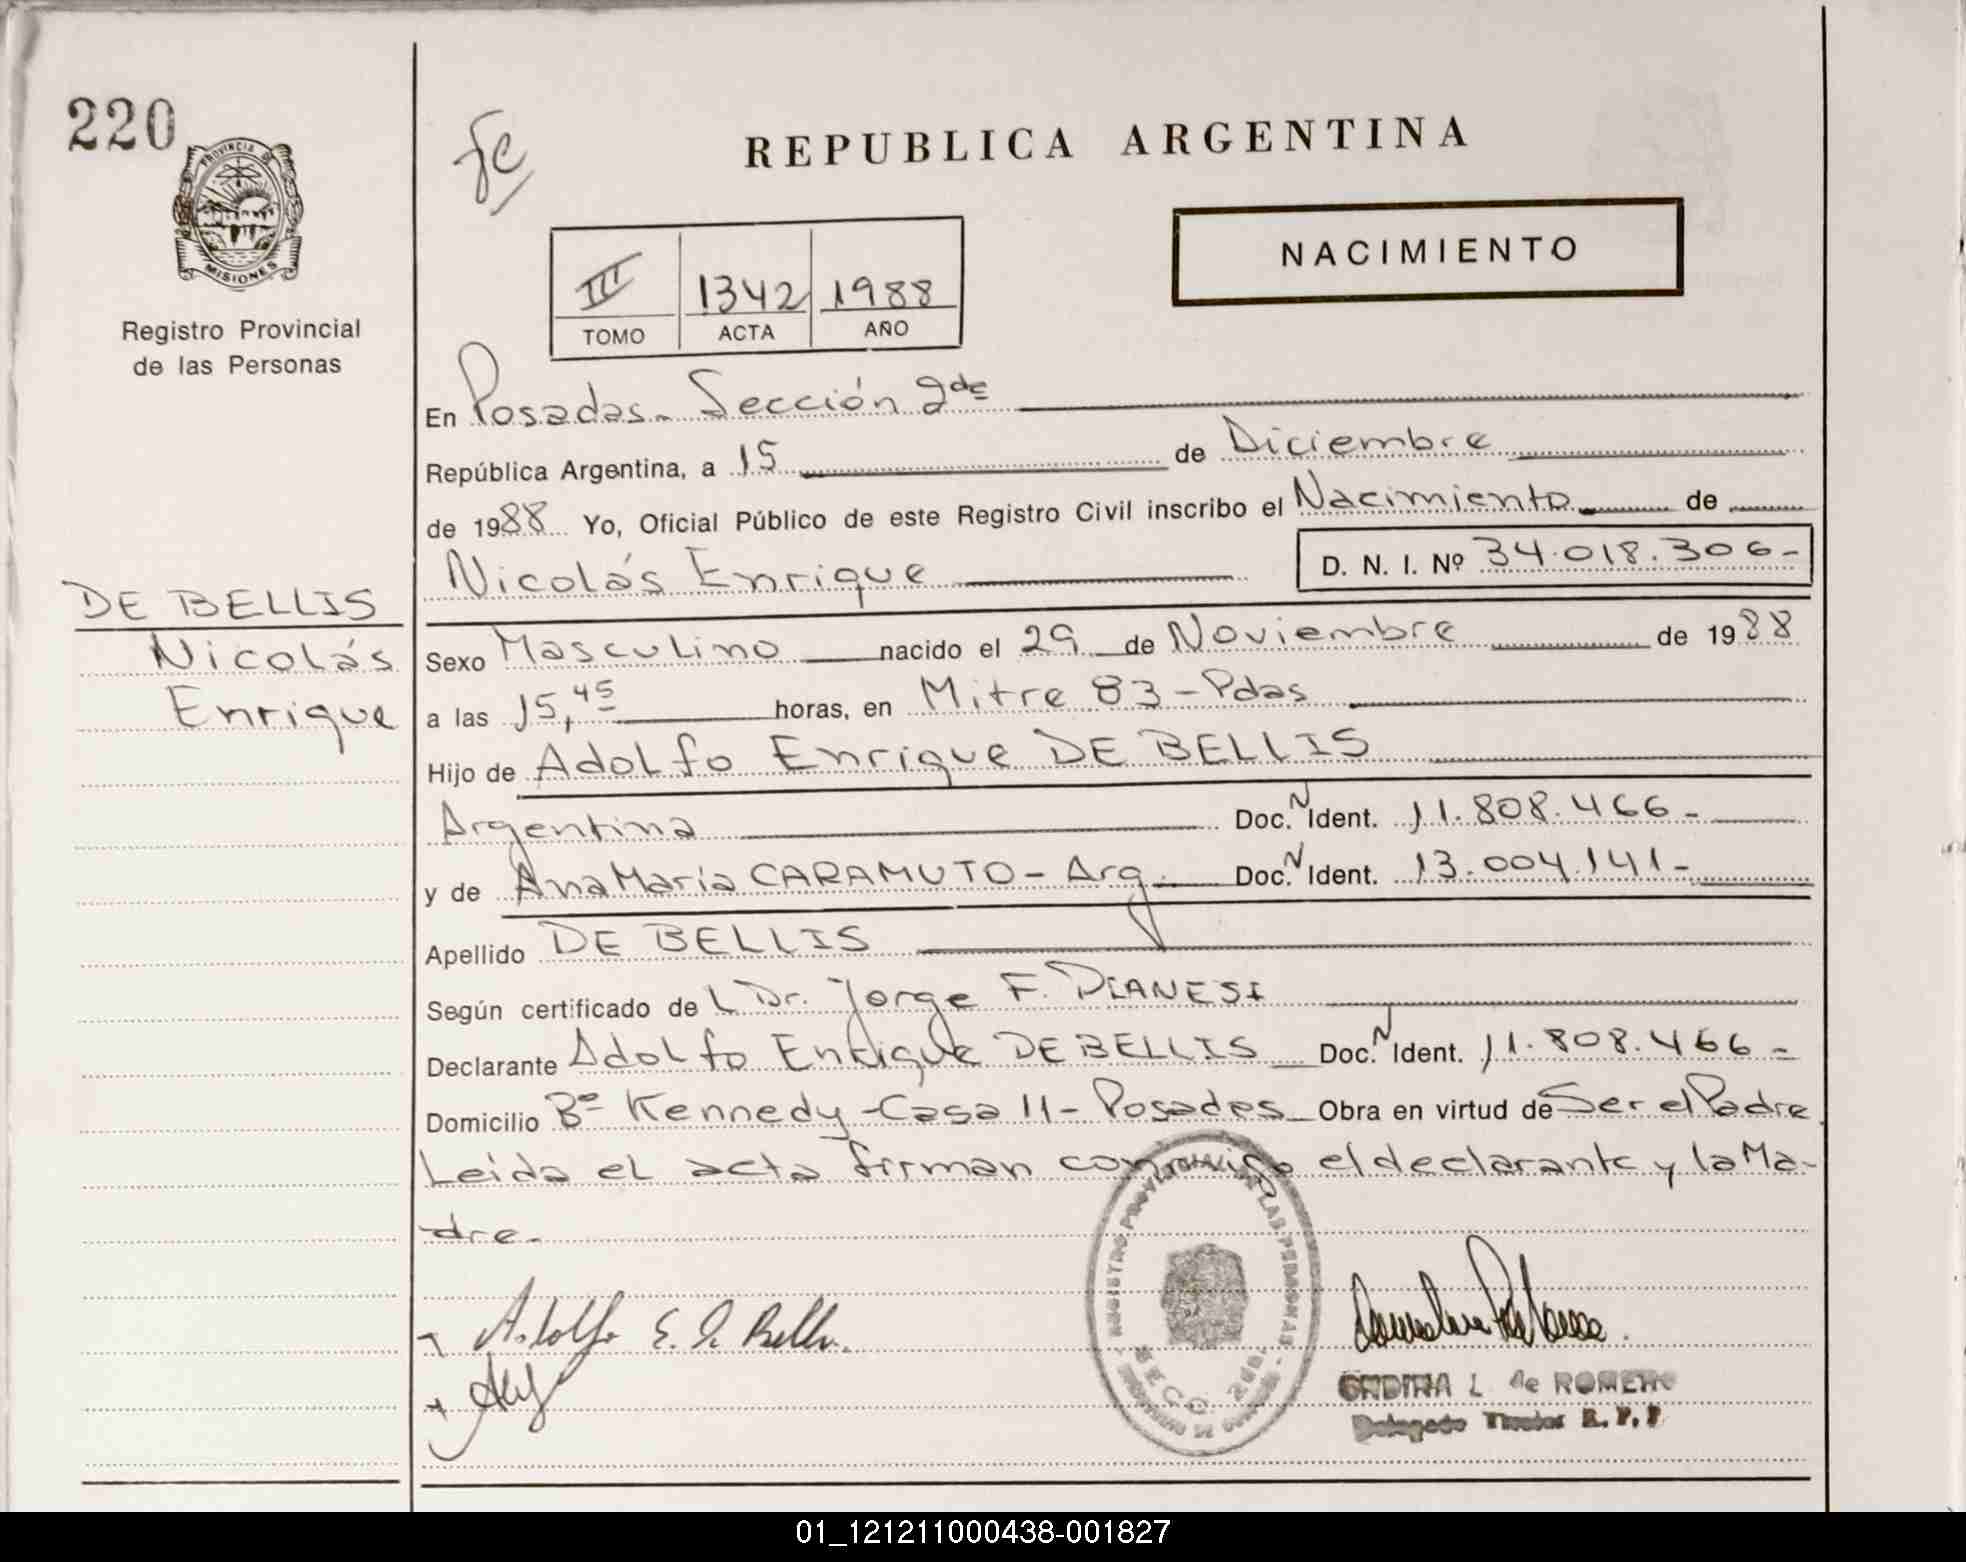 220
PROVINCIA DE
MISIONES
Registro Provincial
de las Personas
REPUBLICA ARGENTINA
NACIMIENTO
III 1342 1988
TOMO ACTA AÑO
En Posadas - Sección 2da
República Argentina, a 15 de Diciembre
de 1988 Yo, Oficial Público de este Registro Civil inscribo el Nacimiento de
Nicolás Enrique D. N. I. Nº 34.018.306-
DE BELLIS
Nicolás
Enrique
Sexo Masculino nacido el 29 de Noviembre de 1988
a las 15,45 horas, en Mitre 83 - Pdas
Hijo de Adolfo Enrique DE BELLIS
Argentina Doc. N Ident. 11.808.466-
y de Ana María CARAMUTO - Arg. Doc. N Ident. 13.004.141-
Apellido DE BELLIS
Según certificado de L Dr. Jorge F. DIANESI
Declarante Adolfo Enrique DE BELLIS Doc. N Ident. 11.808.466-
Domicilio Bº Kennedy - Casa 11 - Posadas Obra en virtud de Ser el Padre
Leida el acta firman conmigo el declarante y la Ma-
dre.
Adolfo E. de Bellis
REGISTRO PROVINCIAL DE LAS PERSONAS
SECC. 2da.
ONDINA L. de ROMERO
Delegado Titular R.P.P
01_121211000438-001827